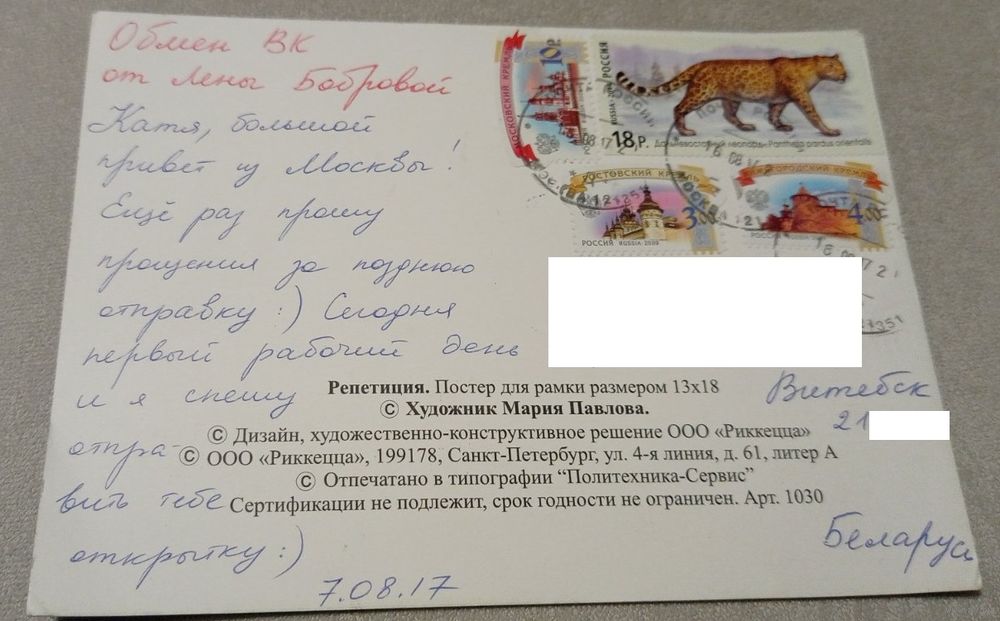 Обмен ВК
от Лены Бобровой
Катя, большой
привет из Москвы!
Ещё раз прошу
прощения за позднюю
отправку :) Сегодня
первый рабочий день
и я спешу
отпра-
вить тебе
открытку :)
7.08.17
МОСКОВСКИЙ КРЕМЛЬ
10 Р.
РОССИЯ
RUSSIA
18 Р.
Дальневосточный леопард Panthera pardus orientalis
РОСТОВСКИЙ КРЕМЛЬ
3.00
РОССИЯ RUSSIA 2009
4.00
РОССИЯ
Репетиция. Постер для рамки размером 13х18
© Художник Мария Павлова.
© Дизайн, художественно-конструктивное решение ООО «Риккецца»
© ООО «Риккецца», 199178, Санкт-Петербург, ул. 4-я линия, д. 61, литер А
© Отпечатано в типографии “Политехника-Сервис”
Сертификации не подлежит, срок годности не ограничен. Арт. 1030
Витебск
21
Беларусь